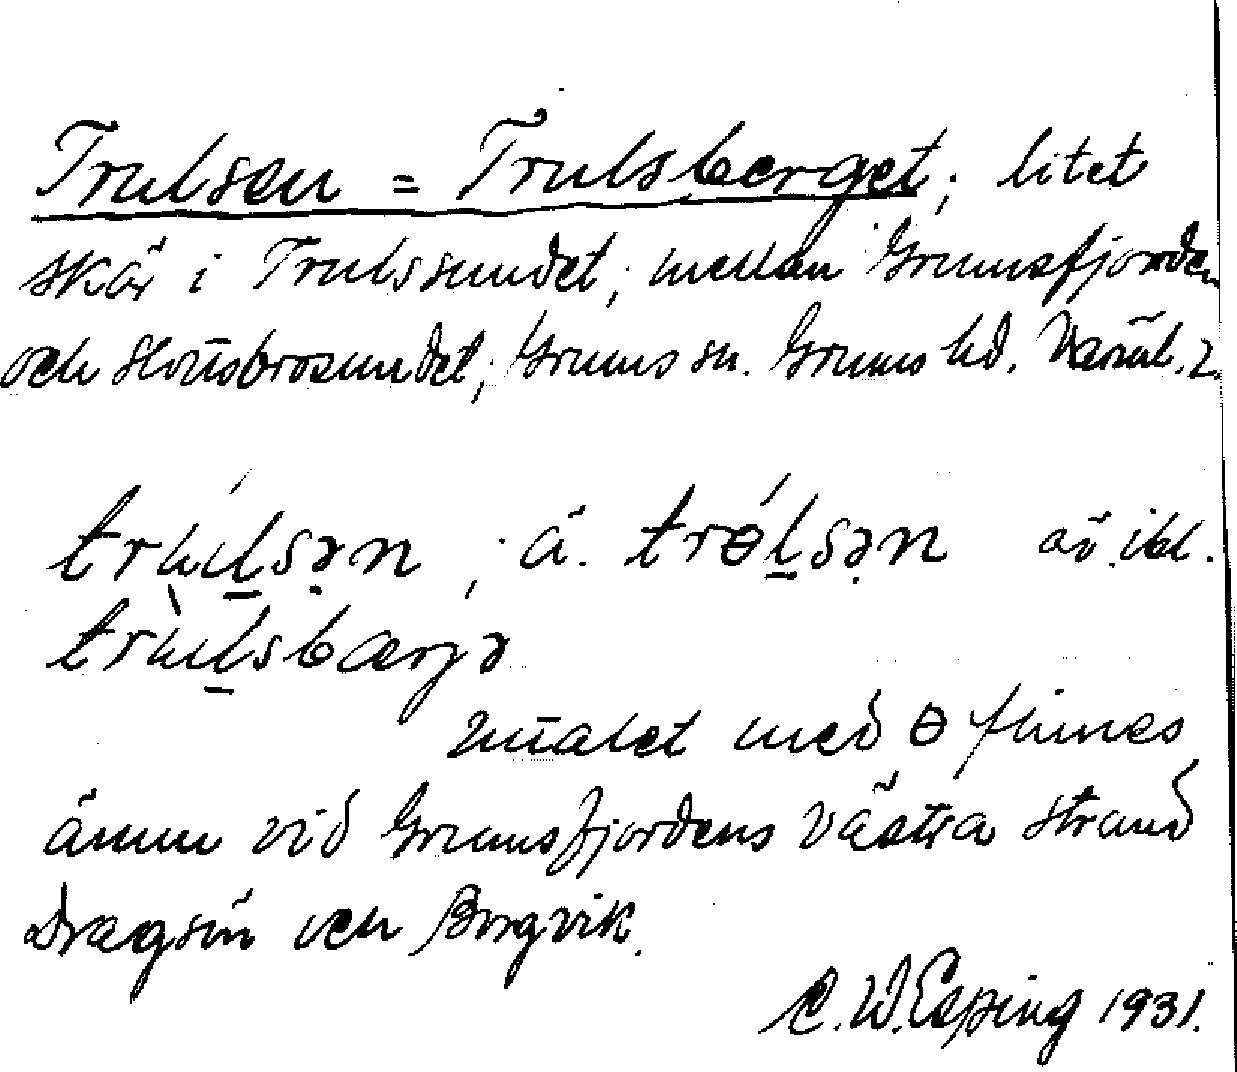 Trulsen = Trulsberget; litet
skär i Trulssundet, mellan Grumsfjorden
och Slottsbrosundet; Grums sn. Grums hd. Värml. l.
trʉ́l̠sən, ä. trɵ́l̠sən av. ibl.
trʉ̀l̠sbærjə
Uttalet med ɵ finnes
ännu vid Grumsfjordens västra strand
Dragsön och Borgvik.
C. W. Esping 1931.